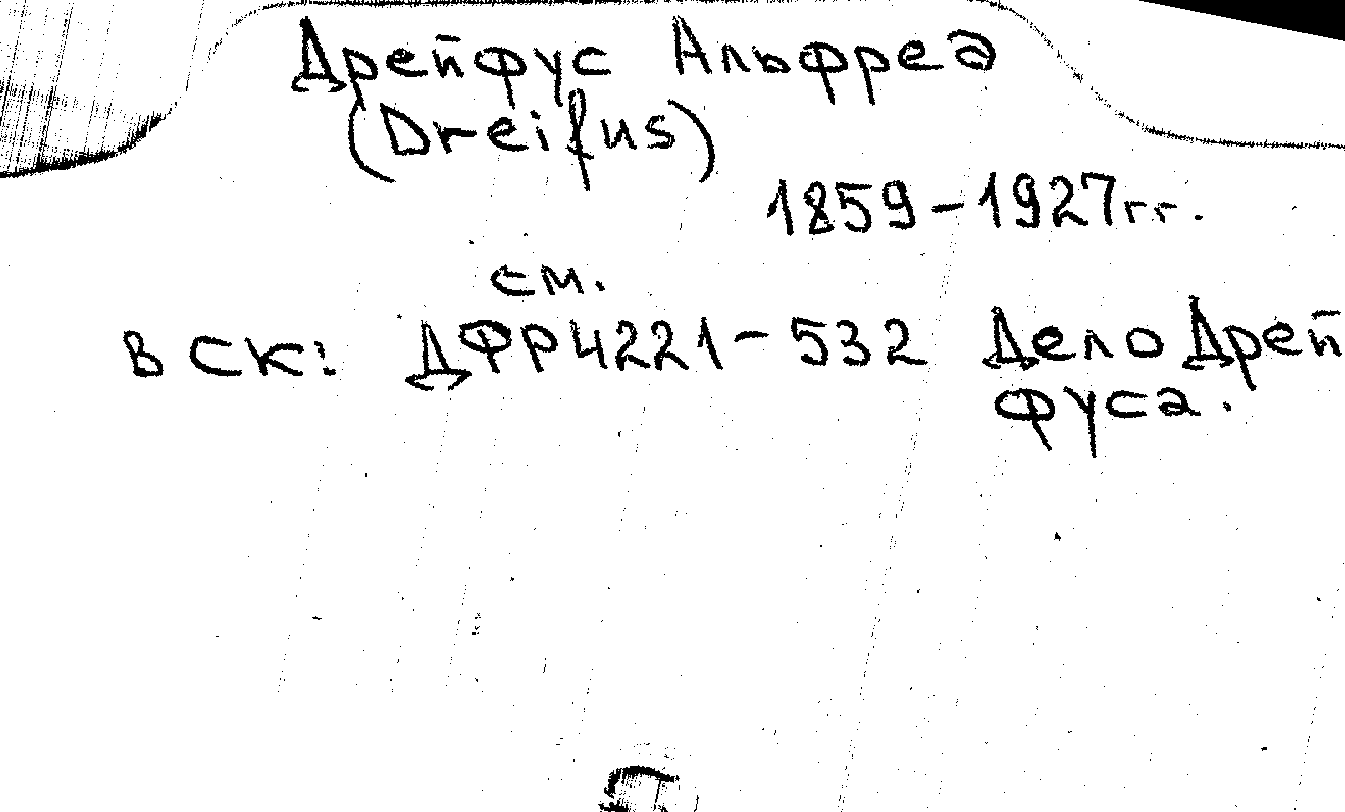 Дрейфус Альфред
(Dreifus)
1859-1927гг.
см.
В СК: ДФР4221-532 Дело Дрей
фуса.